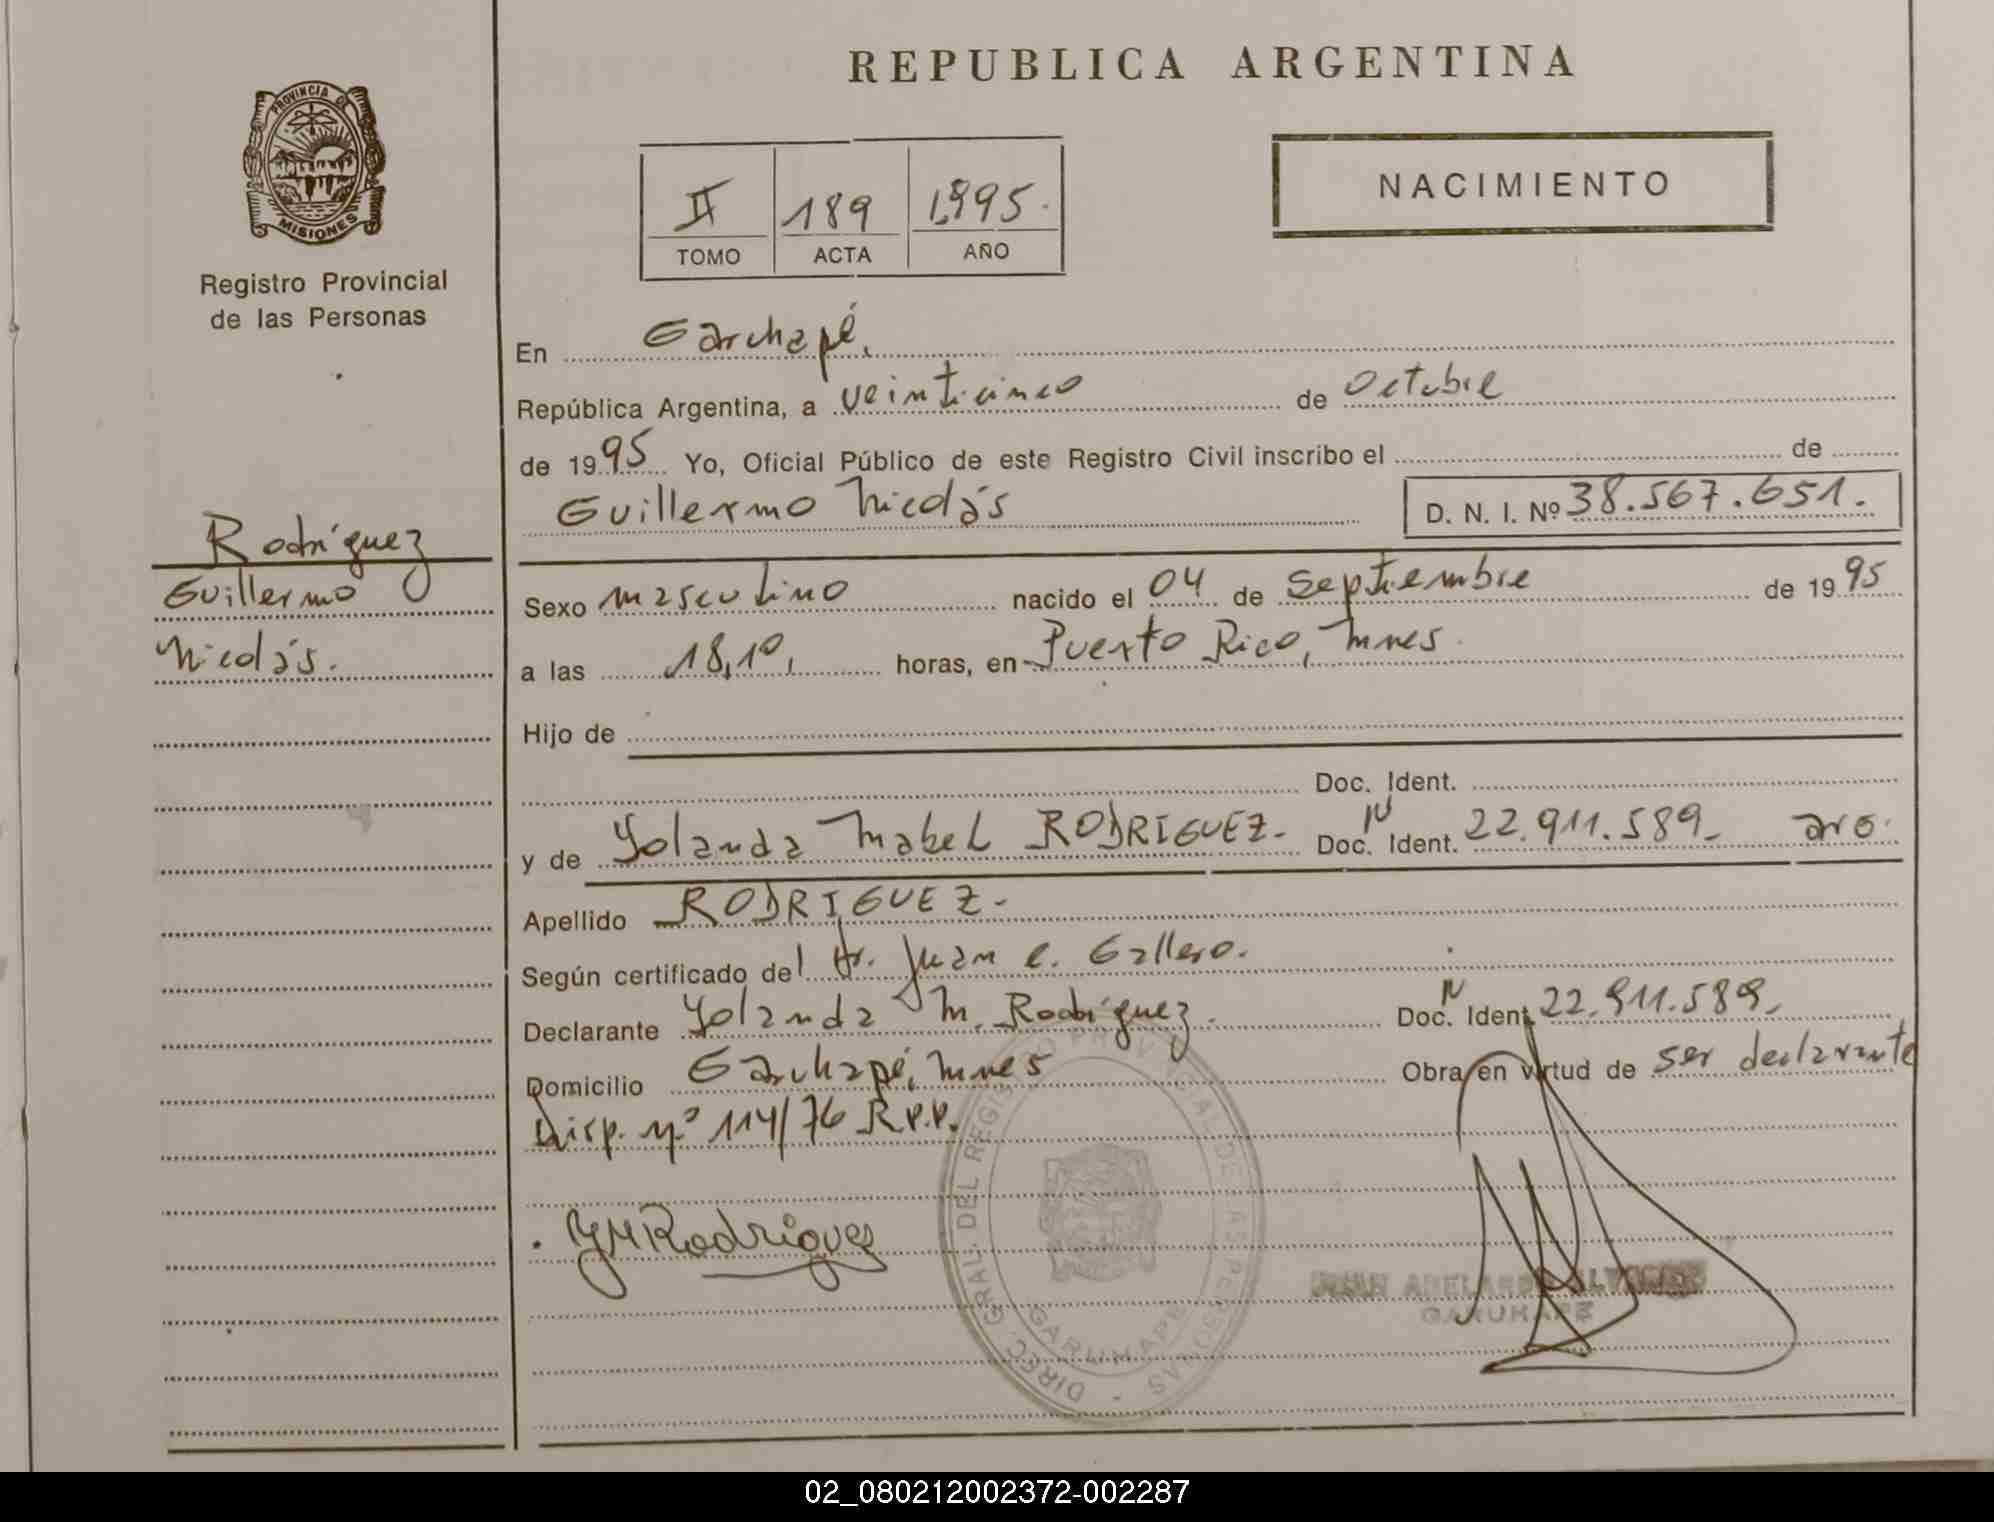 REPUBLICA ARGENTINA
PROVINCIA DE
MISIONES
Registro Provincial
de las Personas
II 189 1.995.
TOMO ACTA AÑO
NACIMIENTO
En Garuhapé,
República Argentina, a veinticinco de Octubre
de 1995 Yo, Oficial Público de este Registro Civil inscribo el de
Guillermo Nicolás D. N. I. Nº 38.567.651.
Rodríguez
Guillermo
Nicolás.
Sexo masculino nacido el 04 de Septiembre de 1995
a las 18,10, horas, en Puerto Rico, Mnes.
Hijo de
Doc. Ident.
y de Yolanda Mabel RODRIGUEZ. Doc. N Ident. 22.911.589.
Apellido RODRIGUEZ.
Según certificado del Dr. Juan C. Gallero.
Declarante Yolanda M. Rodríguez. Doc. N Ident. 22.911.589.
Domicilio Garuhapé, Mnes Obra en virtud de ser declarante
Disp. nº 114/76 R.P.P.
YMRodrigues
JUAN ABELARDO ALVAREZ
GARUHAPE
DIREC. GRAL. DEL REGISTRO PROVINCIAL DE LAS PERSONAS -
GARUHAPE
02_080212002372-002287